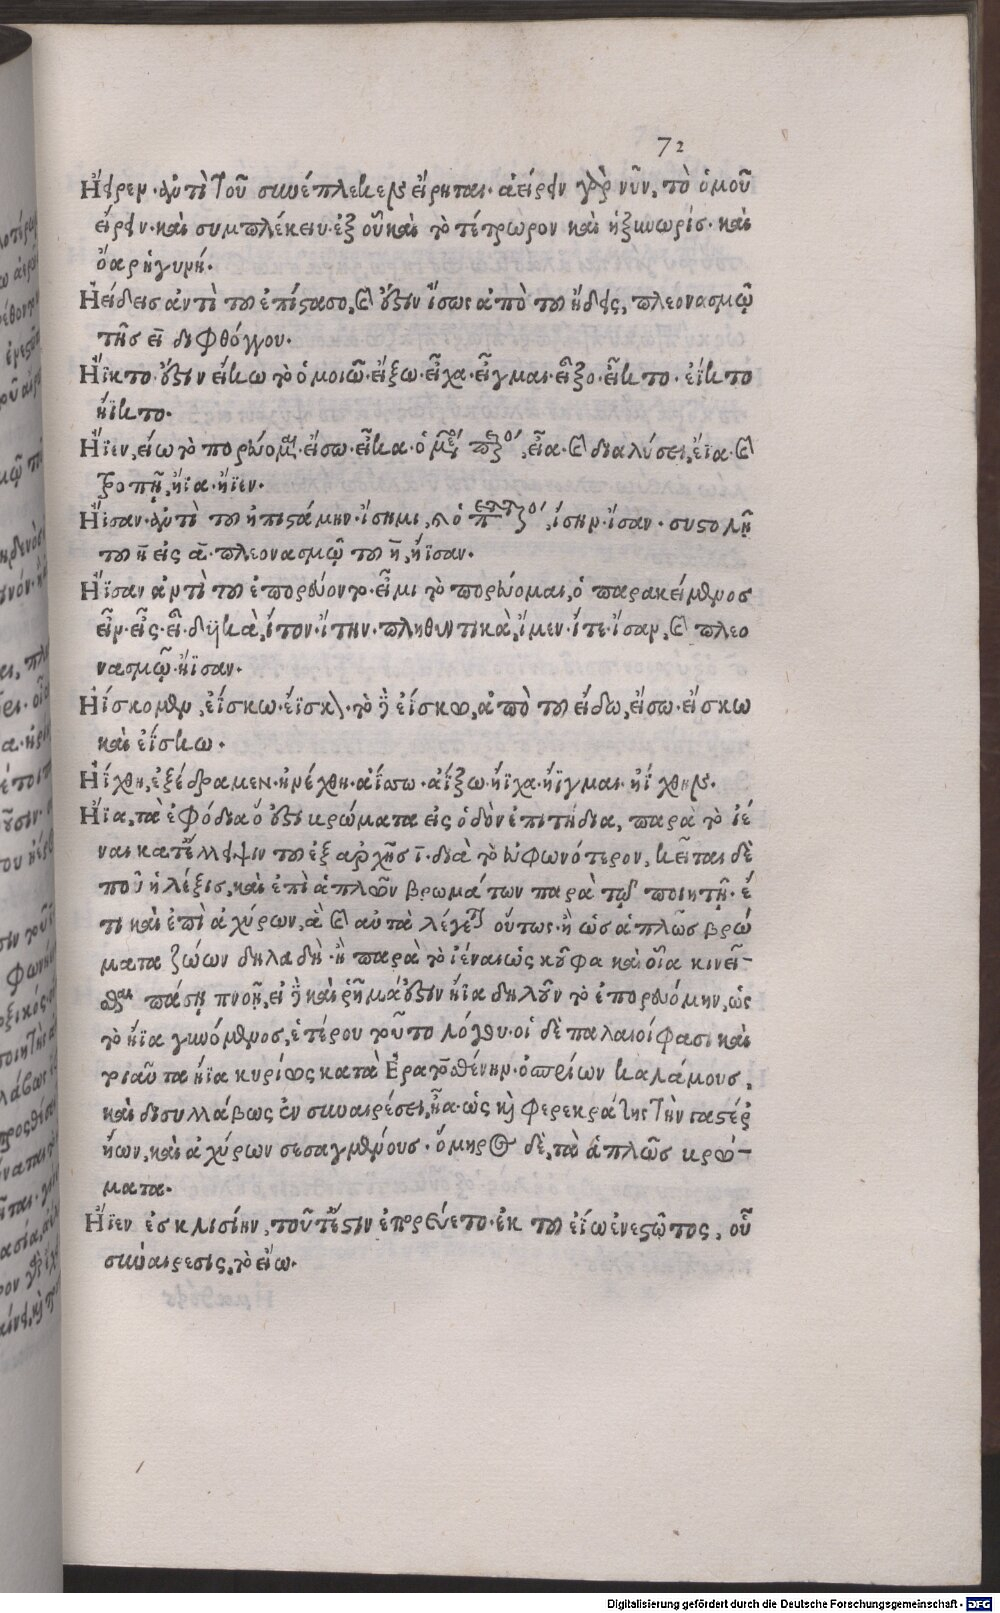 72
Ἤειρεν. ἀντὶ τοῦ συνέπλεκεν εἴρηται. ἀείρειν γὰρ νῦν, τὸ ὁμοῦ
εἴρειν. καὶ συμπλέκειν. ἐξ οὗ καὶ τὸ τέτρωρον καὶ ἡ ξυνωρίς. καὶ
ὄαρ ἡ γυνή.
Ἠείδεις ἀντὶ τοῦ ἐπίστασο, καὶ ἔστιν ἴσως ἀπὸ τοῦ ᾔδεις, πλεονασμῷ
τῆς ει διφθόγγου.
Ἤϊκτο. ἔστιν εἴκω τὸ ὁμοιῶ. εἴξω. εἶχα. εἶγμαι. εἶξο. εἶκτο. ἔϊκτο
ἤϊκτο.
Ἤϊεν, εἴω τὸ πορεύομαι. εἴσω. εἶκα. ὁ μέσος, εἶα. καὶ διαλύσει, ἔϊα. καὶ
τροπῇ, ἤϊα. ἤϊεν.
Ἤισαν. ἀντὶ τοῦ ἠπιστάμην. ἴσημι, ἴσην. ἴσαν. συστολῇ
τοῦ η εἰς α. πλεονασμῷ τοῦ η, ἤϊσαν.
Ἤϊσαν ἀντὶ τοῦ ἐπορεύοντο. εἶμι τὸ πορεύομαι, ὁ παρακείμενος
εἶν. εἶς. εἶ. δυϊκὰ, ἴτον. ἴτην. πληθυντικὰ, ἴμεν. ἴτε. ἴσαν, καὶ πλεο
νασμῷ. ἤϊσαν.
Ἠίσκομεν, ἐίσκω. ἔϊσκον. τὸ δὲ ἐίσκω, ἀπὸ τοῦ εἴδω, εἴσω. εἴσκω
καὶ ἐΐσκω.
Ἠίχθη, ἐξέδραμεν. ἠνέχθη. ἀΐσσω. ἀΐξω. ἤϊχα. ἤϊγμαι. ἠΐχθην.
Ἤϊα, τὰ ἐφόδια ὅ ἐστι βρώματα εἰς ὁδὸν ἐπιτήδια, παρὰ τὸ ἰέ
ναι κατ' ἔλλειψιν τοῦ ἐξ ἀρχῆς ι. διὰ τὸ εὐφωνότερον, κεῖται δέ
που ἡ λέξις, καὶ ἐπὶ ἁπλῶν βρωμάτων παρὰ τῷ ποιητῇ. ἔ
τι καὶ ἐπὶ ἀχύρων, ἃ καὶ αὐτὰ λέγεται οὕτως. ἢ ὡς ἁπλῶς βρώ
ματα ζώων δηλαδή. ἢ παρὰ τὸ ἰέναι ὡς κοῦφα καὶ οἷα κινεῖ-
σθαι πάσῃ πνοῇ, εἰ δὲ καὶ ῥῆμά ἐστιν ἤϊα δηλοῦν τὸ ἐπορευόμην, ὡς
τὸ ἤϊα γενόμενος, ἑτέρου τοῦτο λόγου. οἱ δὲ παλαιοί φασι καὶ
τοιαῦτα ἤϊα κυρίως κατὰ Ἐρατοσθένην. ὀσπρίων καλάμους,
καὶ δισυλλάβως ἐν συναιρέσει, ᾖα. ὡς καὶ Φερεκράτης τὴν γαστέρ
ᾔων, καὶ ἀχύρων σεσαγμένους. ὅμηρος δὲ, τὰ ἁπλῶς βρώ-
ματα.
Ἤϊεν ἐς κλισίην, τοῦτέστιν ἐπορεύετο. ἐκ τοῦ ἐΐω ἐνεστῶτος, οὗ
συναίρεσις, τὸ εἴω.